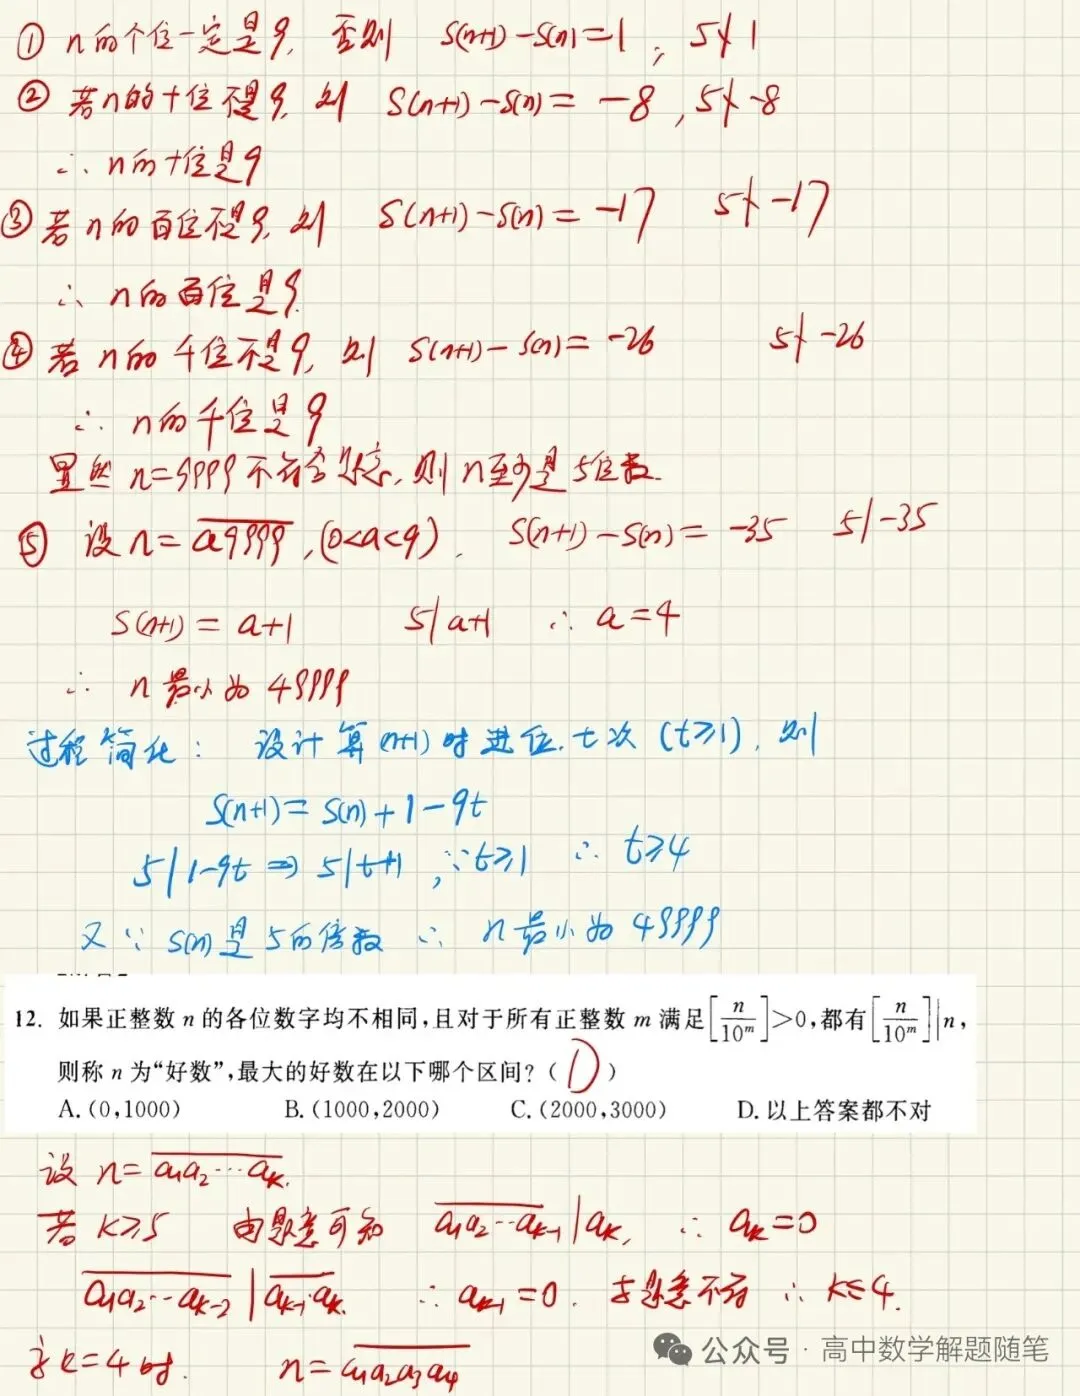 ① n的个位一定是9, 否则 S(n+1)-S(n)=1, 5∤1
② 若n的十位不是9, 则 S(n+1)-S(n)= -8, 5∤-8
∴ n的十位是9
③ 若n的百位不是9, 则 S(n+1)-S(n)= -17 5∤-17
∴ n的百位是9.
④ 若n的千位不是9, 则 S(n+1)-S(n)= -26 5∤-26
∴ n的千位是9
显然 n=9999不符合题意, 则n至少是5位数.
⑤ 设n=\overline{a9999}, (0<a<9). S(n+1)-S(n)= -35 5|-35
S(n+1)= a+1 5|a+1 ∴ a=4
∴ n最小为 49999
过程简化: 设计算(n+1)时进位 t次 (t≥1), 则
S(n+1)= S(n)+1-9t
5|1-9t ⇒ 5|t+1, ∵t≥1 ∴ t≥4
又∵ S(n)是5的倍数 ∴ n最小为 49999
12. 如果正整数 n 的各位数字均不相同,且对于所有正整数 m 满足[n/10^m]>0,都有[n/10^m]|n,
则称 n 为“好数”,最大的好数在以下哪个区间?( D )
A.(0,1000) B.(1000,2000) C.(2000,3000) D.以上答案都不对
设 n=\overline{a₁a₂…a_k}.
若 k≥5 由题意可知 \overline{a₁a₂…a_{k-1}}|a_k, ∴ a_k=0
\overline{a₁a₂…a_{k-2}}|\overline{a_{k-1}a_k}. ∴ a_{k-1}=0. 与题意不符 ∴ k≤4.
当k=4时. n=\overline{a₁a₂a₃a₄}
公众号·高中数学解题随笔